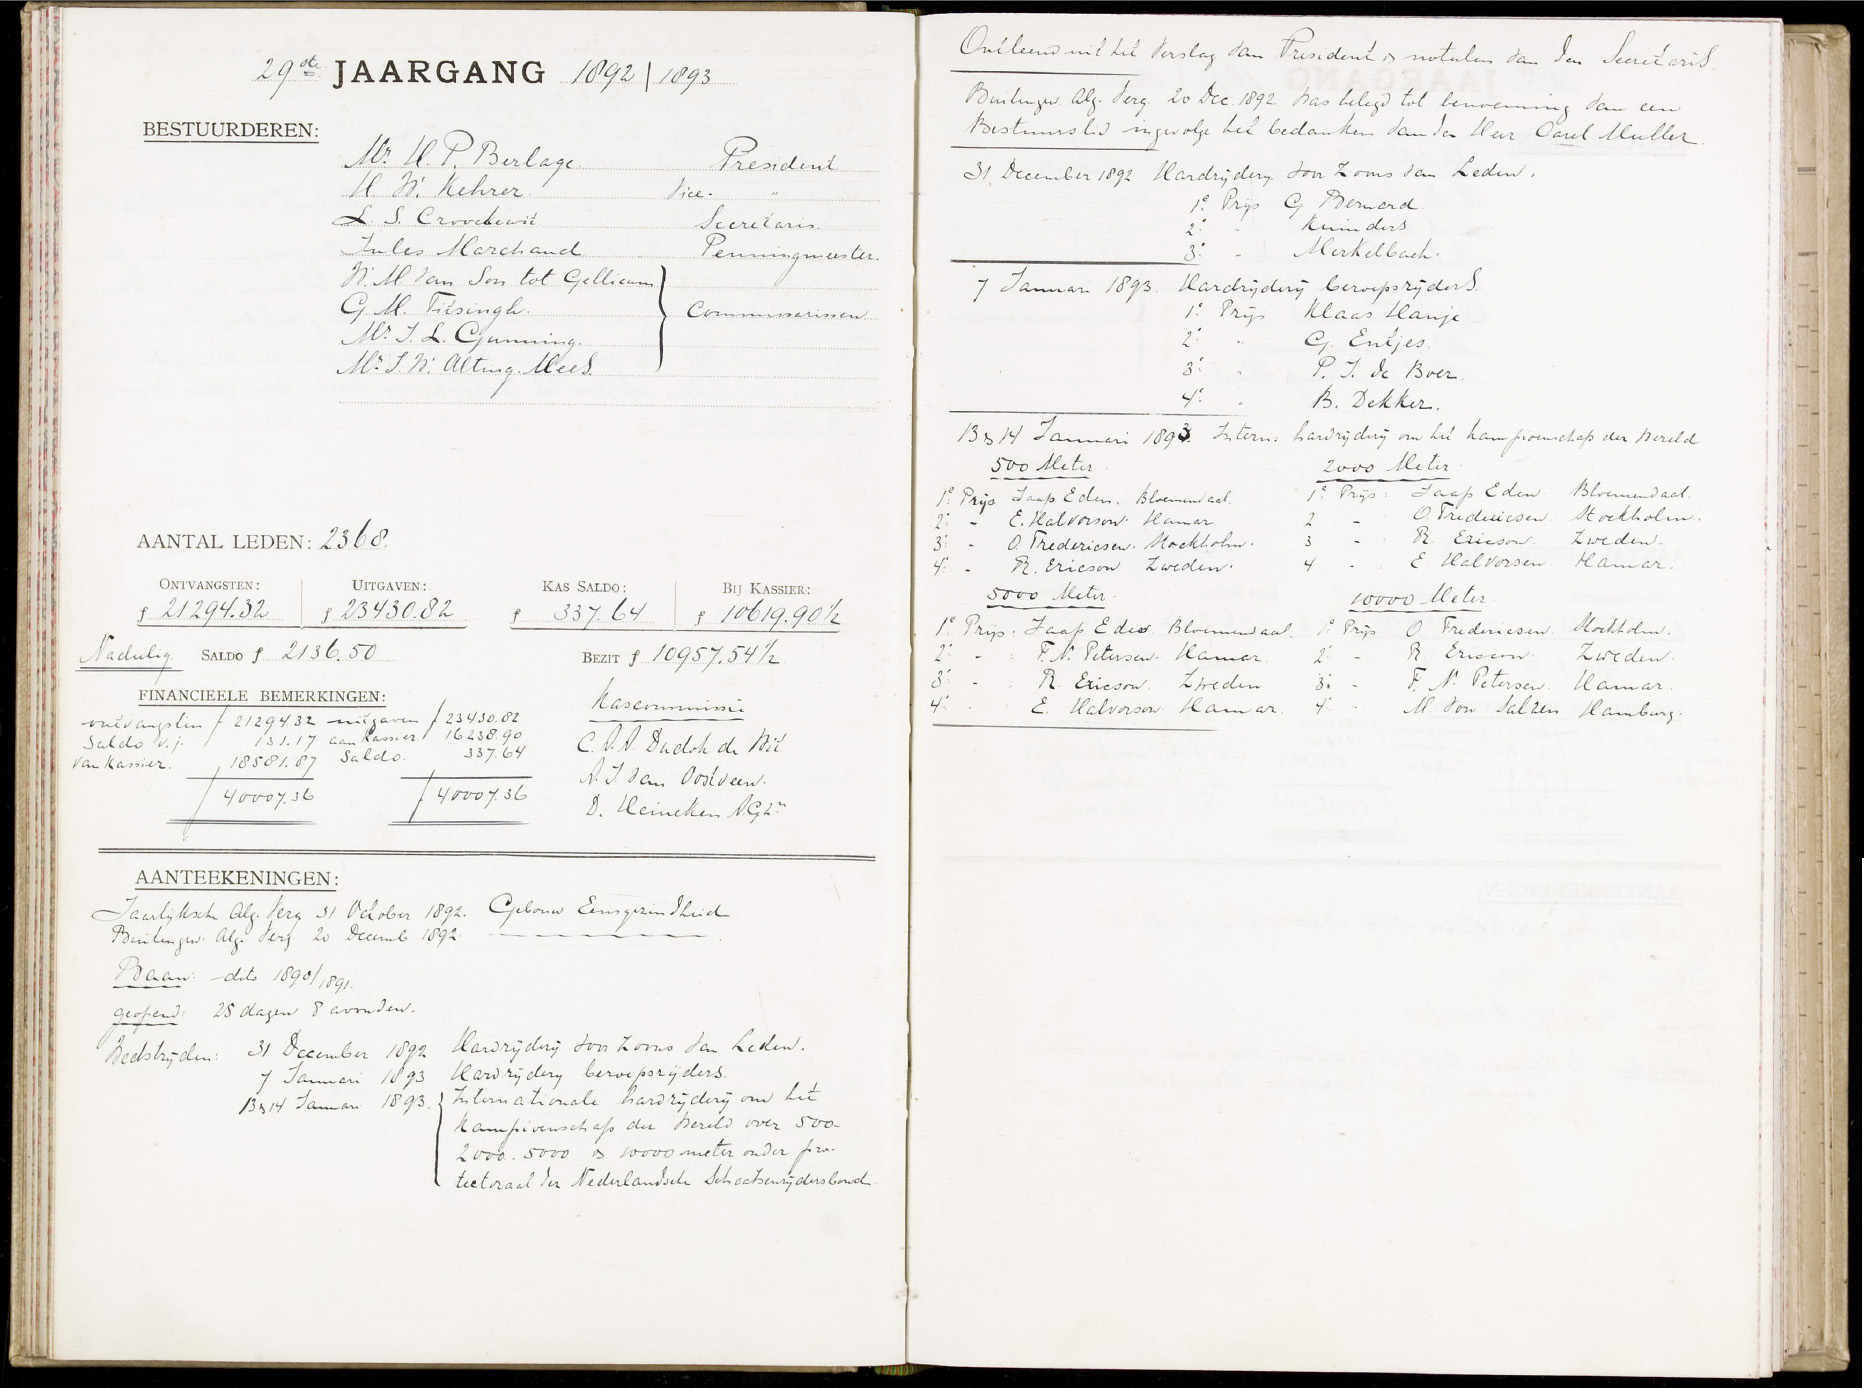 29ste JAARGANG 1892 | 1893
BESTUURDEREN:
Mr H. P. Berlage. President
H. W. Kehrer. Vice- "
L. S. Croockewit Secretaris.
Jules Marchand Penningmeester.
W. M van Son tot Gellicum
G. M. Titsingh. Commissarissen
Mr J. L. Gunning.
Mr J. W. Alting. Mees.
AANTAL LEDEN: 2368.
ONTVANGSTEN: UITGAVEN: KAS SALDO: BIJ KASSIER:
f 21294.32 f 23430.82 f 337.64 f 10619.90½
Nadelig SALDO f 2136.50 BEZIT f 10957.54½
FINANCIEELE BEMERKINGEN: Kascommissie
ontvangsten f 21294.32 uitgaven f 23430.82
Saldo v.j. 131.17 aan Kassier 16238.90
van Kassier. 18581.87 Saldo. 337.64
C. A. A. Dudok de Wit
A. J. van Oostveen.
40007.36 40007.36
D. Heineken A.Gzn
AANTEEKENINGEN:
Jaarlijksche Alg. Verg 31 October 1892. Gebouw Eensgezindheid
Buitengew. Alg. Verg 20 Decemb 1892.
Baan: dito 1890/1891.
geopend: 25 dagen 8 avonden.
Wedstrijden: 31 December 1892 Hardrijderij voor Zoons van Leden.
7 Januari 1893 Hardrijderij beroepsrijders.
13 & 14 Januari 1893. Internationale hardrijderij om het
Kampioenschap der Wereld over 500-
2000. 5000 & 10000 meter onder pro-
tectoraat der Nederlandsche Schaatsenrijdersbond.
Ontleend uit het Verslag van President & notulen van den Secretaris.
Buitengew. Alg. Verg. 20 Dec. 1892 was belegd tot benoeming van een
Bestuurslid ingevolge het bedanken van den Heer Carel Muller.
31 December 1892 Hardrijderij voor Zoons van Leden.
1e Prijs G Bernard.
2e " Kuinders
3e " Merkelbach.
7 Januari 1893. Hardrijderij beroepsrijders.
1e Prijs Klaas Hanje
2e " G. Entjes.
3e " P. J. de Boer.
4e " B. Dekker.
13 & 14 Januari 1893. Intern. hardrijderij om het kampioenschap der Wereld
500 Meter 2000 Meter
1e Prijs Jaap Eden. Bloemendaal. 1e Prijs: Jaap Eden Bloemendaal.
2e - E. Halvorson. Hamar 2 - O Fredericsen. Stockholm.
3e - O. Fredericsen. Stockholm. 3 - R. Ericson. Zweden.
4e - R. Ericson Zweden. 4 - E Halvorsen Hamar.
5000 Meter. 10000 Meter.
1e Prijs: Jaap Eden Bloemendaal. 1e Prijs O Fredericsen. Stockholm.
2e - F. N. Petersen. Hamar. 2e - R Ericson. Zweden.
3e - R. Ericson. Zweden 3e - F. N. Petersen. Hamar.
4e - E. Halvorson Hamar. 4e - M von Salzen Hamburg.